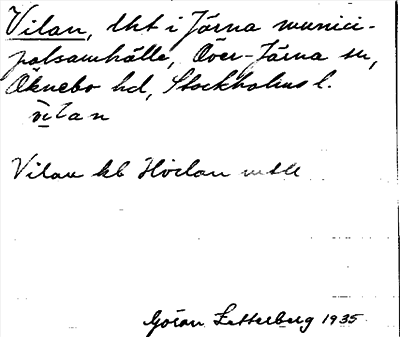 Vilan, lht i Järna munici-
palsamhälle, Över-Järna sn,
Öknebo hd, Stockholms l.
vilan
Vilan kb Hvilan
Göran Zetterberg 1935